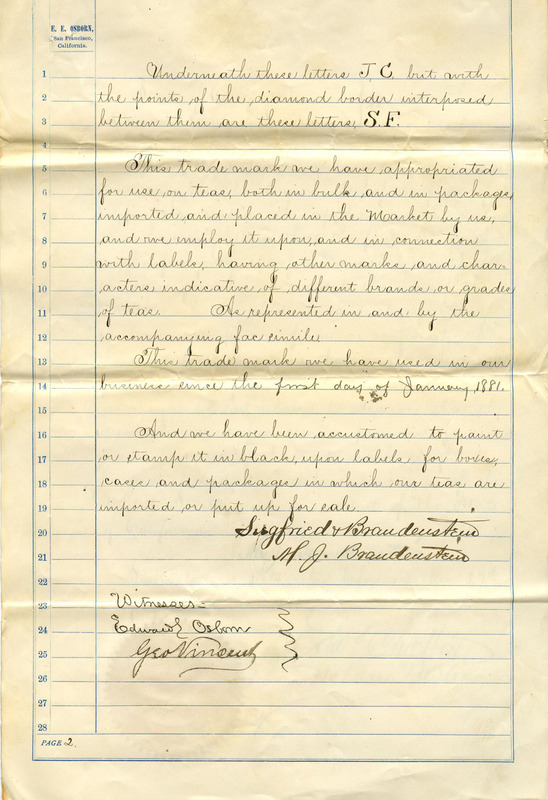 E. E. OSBORN,
San Francisco,
California.
1 Underneath these letters J, C, but with
2 the points of the diamond border interposed
3 between them are these letters, S.F.
4
5 This trade mark we have appropriated
6 for use on teas, both in bulk and in packages,
7 imported and placed in the Market by us,
8 and we employ it upon, and in connection
9 with labels, having other marks and char-
10 acters indicative of different brands or grades
11 of teas. As represented in and by the
12 accompanying fac simile.
13 This trade mark we have used in our
14 business since the first day of January, 1881.
15
16 And we have been accustomed to paint
17 or stamp it in black, upon labels for boxes,
18 cases and packages in which our teas are
19 imported or put up for sale.
20 Siegfried & Brandenstein
21 M. J. Brandenstein
22
23 Witnesses-
24 Edward Osborn
25 Geo Vincent
26
27
28
PAGE 2.